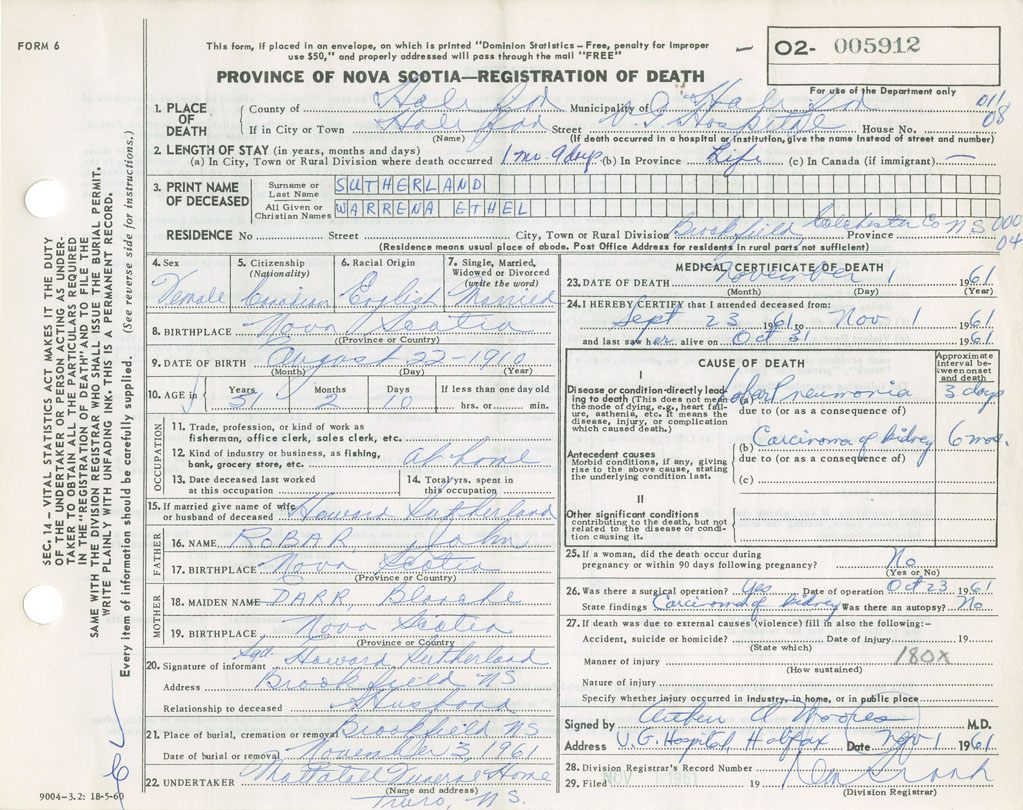 FORM 6
This form, if placed in an envelope, on which is printed "Dominion Statistics – Free, penalty for improper
use $50," and properly addressed will pass through the mail "FREE"
02- 005912
PROVINCE OF NOVA SCOTIA—REGISTRATION OF DEATH
For use of the Department only
1. PLACE OF DEATH
County of Halifax Municipality of Halifax 011
If in City or Town Halifax Street V.G. Hospital House No. 08
(Name) (If death occurred in a hospital or institution, give the name instead of street and number)
2. LENGTH OF STAY (in years, months and days)
(a) In City, Town or Rural Division where death occurred 1 mo. 9 days. (b) In Province Life (c) In Canada (if immigrant) —
3. PRINT NAME OF DECEASED
Surname or Last Name SUTHERLAND
All Given or Christian Names WARRENA ETHEL
RESIDENCE No. Street City, Town or Rural Division Brookfield Colchester Co Province NS 000 04
(Residence means usual place of abode. Post Office Address for residents in rural parts not sufficient)
4. Sex
Female
5. Citizenship (Nationality)
Canadian
6. Racial Origin
English
7. Single, Married, Widowed or Divorced (write the word)
Married
8. BIRTHPLACE Nova Scotia
(Province or Country)
9. DATE OF BIRTH August 22-1910
(Month) (Day) (Year)
10. AGE
Years 51 Months 2 Days 10
If less than one day old
hrs. or min.
OCCUPATION
11. Trade, profession, or kind of work as
fisherman, office clerk, sales clerk, etc.
12. Kind of industry or business, as fishing,
bank, grocery store, etc. at home
13. Date deceased last worked
at this occupation
14. Total yrs. spent in
this occupation
15. If married give name of wife
or husband of deceased Howard Sutherland
FATHER
16. NAME ROBAR, John
17. BIRTHPLACE Nova Scotia
(Province or Country)
MOTHER
18. MAIDEN NAME DARR, Blanche
19. BIRTHPLACE Nova Scotia
(Province or Country)
20. Signature of informant Sgd. Howard Sutherland
Address Brookfield NS
Relationship to deceased Husband
21. Place of burial, cremation or removal Brookfield NS
Date of burial or removal November 3, 1961
22. UNDERTAKER Mattatall Funeral Home
(Name and address)
Truro, N.S.
MEDICAL CERTIFICATE OF DEATH
23. DATE OF DEATH November 1 1961
(Month) (Day) (Year)
24. I HEREBY CERTIFY that I attended deceased from:
Sept 23 1961 to Nov 1 1961
and last saw her alive on Oct 31 1961
CAUSE OF DEATH
Approximate interval between onset and death
I
Disease or condition directly leading to death (This does not mean the mode of dying, e.g., heart failure, asthenia, etc. It means the disease, injury, or complication which caused death.)
(a) Lobar Pneumonia 3 days
due to (or as a consequence of)
(b) Carcinoma of kidney 6 mos.
due to (or as a consequence of)
(c)
Antecedent causes
Morbid conditions, if any, giving rise to the above cause, stating the underlying condition last.
II
Other significant conditions
contributing to the death, but not related to the disease or condition causing it.
25. If a woman, did the death occur during
pregnancy or within 90 days following pregnancy? No
(Yes or No)
26. Was there a surgical operation? Yes Date of operation Oct 23 1961
State findings Carcinoma of kidney Was there an autopsy? No
27. If death was due to external causes (violence) fill in also the following:–
Accident, suicide or homicide? Date of injury 19
(State which)
Manner of injury 180X
(How sustained)
Nature of injury
Specify whether injury occurred in industry, in home, or in public place
Signed by M.D.
Address V.G. Hospital, Halifax Date Nov 1 1961
28. Division Registrar's Record Number
29. Filed NOV 1961 19
(Division Registrar)
SEC. 14 – VITAL STATISTICS ACT MAKES IT THE DUTY
OF THE UNDERTAKER OR PERSON ACTING AS UNDER-
TAKER TO OBTAIN ALL THE PARTICULARS REQUIRED
IN THE "REGISTRATION OF DEATH" AND TO FILE THE
SAME WITH THE DIVISION REGISTRAR WHO SHALL ISSUE THE BURIAL PERMIT.
WRITE PLAINLY WITH UNFADING INK. THIS IS A PERMANENT RECORD.
Every item of information should be carefully supplied. (See reverse side for instructions.)
9004–3.2: 18-5-60